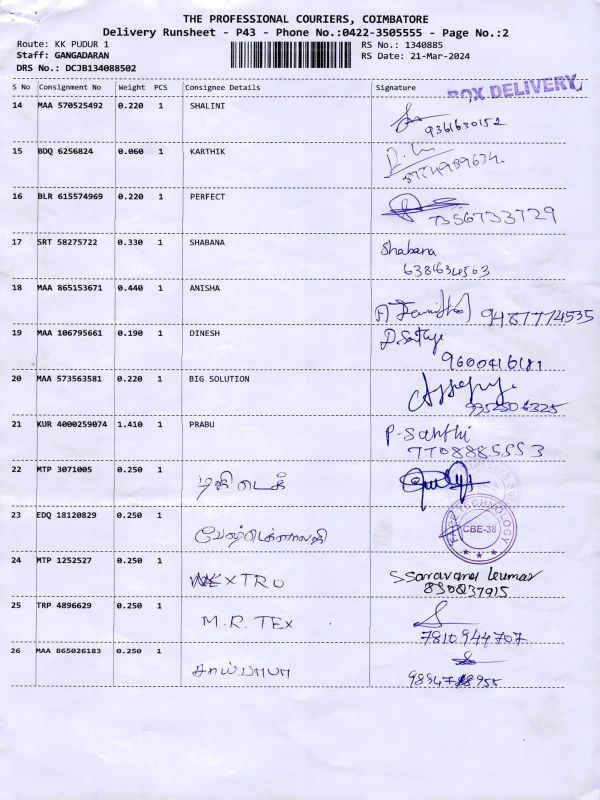 THE PROFESSIONAL COURIERS, COIMBATORE
Delivery Runsheet - P43 - Phone No.:0422-3505555 - Page No.:2
Route: KK PUDUR 1
Staff: GANGADARAN
DRS No.: DCJB134088502
RS No.: 1340885
RS Date: 21-Mar-2024
S No Consignment No Weight PCS Consignee Details Signature
BOX DELIVERY
14 MAA 570525492 0.220 1 SHALINI
9361630152
15 BDQ 6256824 0.060 1 KARTHIK
16 BLR 615574969 0.220 1 PERFECT
7356733729
17 SRT 58275722 0.330 1 SHABANA Shabana
18 MAA 865153671 0.440 1 ANISHA
9487774535
19 MAA 106795661 0.190 1 DINESH
9600416181
20 MAA 573563581 0.220 1 BIG SOLUTION
21 KUR 4000259074 1.410 1 PRABU P-Santhi
7708885553
22 MTP 3071005 0.250 1
டிகி டெக்
23 EDQ 18120829 0.250 1
TECHNOLOGY
CBE-38
24 MTP 1252527 0.250 1 NEXTRO S Saravana kumar
25 TRP 4896629 0.250 1 M.R. TEx
7810944707
26 MAA 865026183 0.250 1
சாய்பாபா